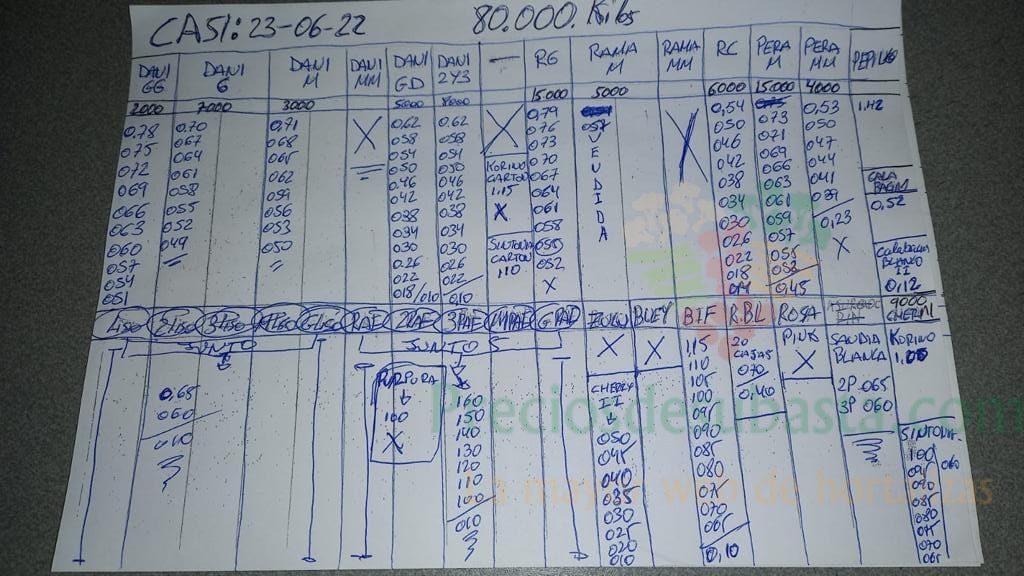 CASI: 23-06-22 80.000 Kilos
DANI GG DANI G DANI M DANI MM DANI GD DANI 2Y3 — RG RAMA M RAMA MM RC PERA M PERA MM PEPINO
2000 7000 3000 5000 15.000 5000 6000 15.000 4000
0,78 0,70 0,71 X 0,62 0,62 X 0,79 057 X 0,54 073 0,53 1,12
075 067 068 058 058 076 VENDIDA 050 071 050
072 064 065 054 054 073 046 069 047
069 061 062 050 050 KORINO CARTON 1,15 X 070 042 066 044
066 058 059 046 046 067 038 063 041 CALABACIN 0,52
063 055 056 042 042 064 034 061 039
060 052 053 038 038 061 030 059 0,23
057 049 050 034 034 SINTONIA CARTON 1,10 058 026 057 X
054 030 030 055 022 055 Calabacin Blanco II 0,12
051 026 026 052 018 052
022 022 X 014 0,45
018/010 010
Liso Liso Liso Liso RAE 2RAE 3RAE GRAE BUEY BIF R.BLL ROSA 9000 CHERRY
JUNTO JUNTOS
X X 1,15 20 CAJAS 070 PINK X SAUDIA BLANCA KORINO
PURPURA 100 X
0,65 060 010
160 150 140 130 120 110 100 010
CHERRY II 050 045 040 035 030 025 020 010
110 105 100 095 090 085 080 075 070 065 0,10
0,40
2P 065
3P 060
SINTONIA 100 095 090 085 080 075 070 065
060
Preciosdesubasta.com
La mayor web de hortalizas